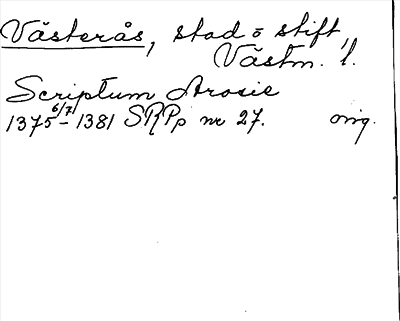 Västerås, stad o stift,
Västm. l.
Scriptum Arosie
1375 6/7 - 1381 SRPp nr 27. orig.